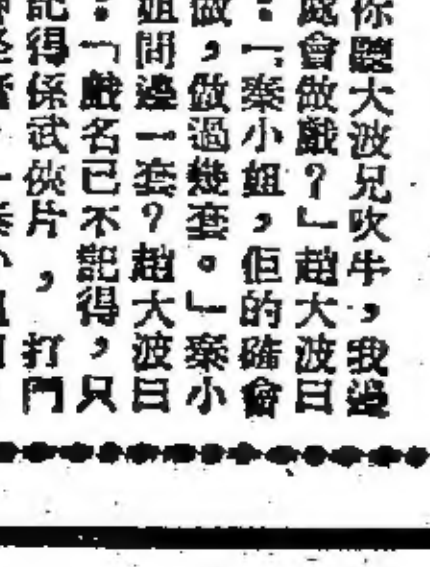 你聽大波兄吹牛，我邊
處會做戲？」趙大波曰
：「秦小姐，佢的確會
做，做過幾套。」秦小
姐問邊一套？趙大波曰
：「戲名已不記得，只
記得係武俠片，打門